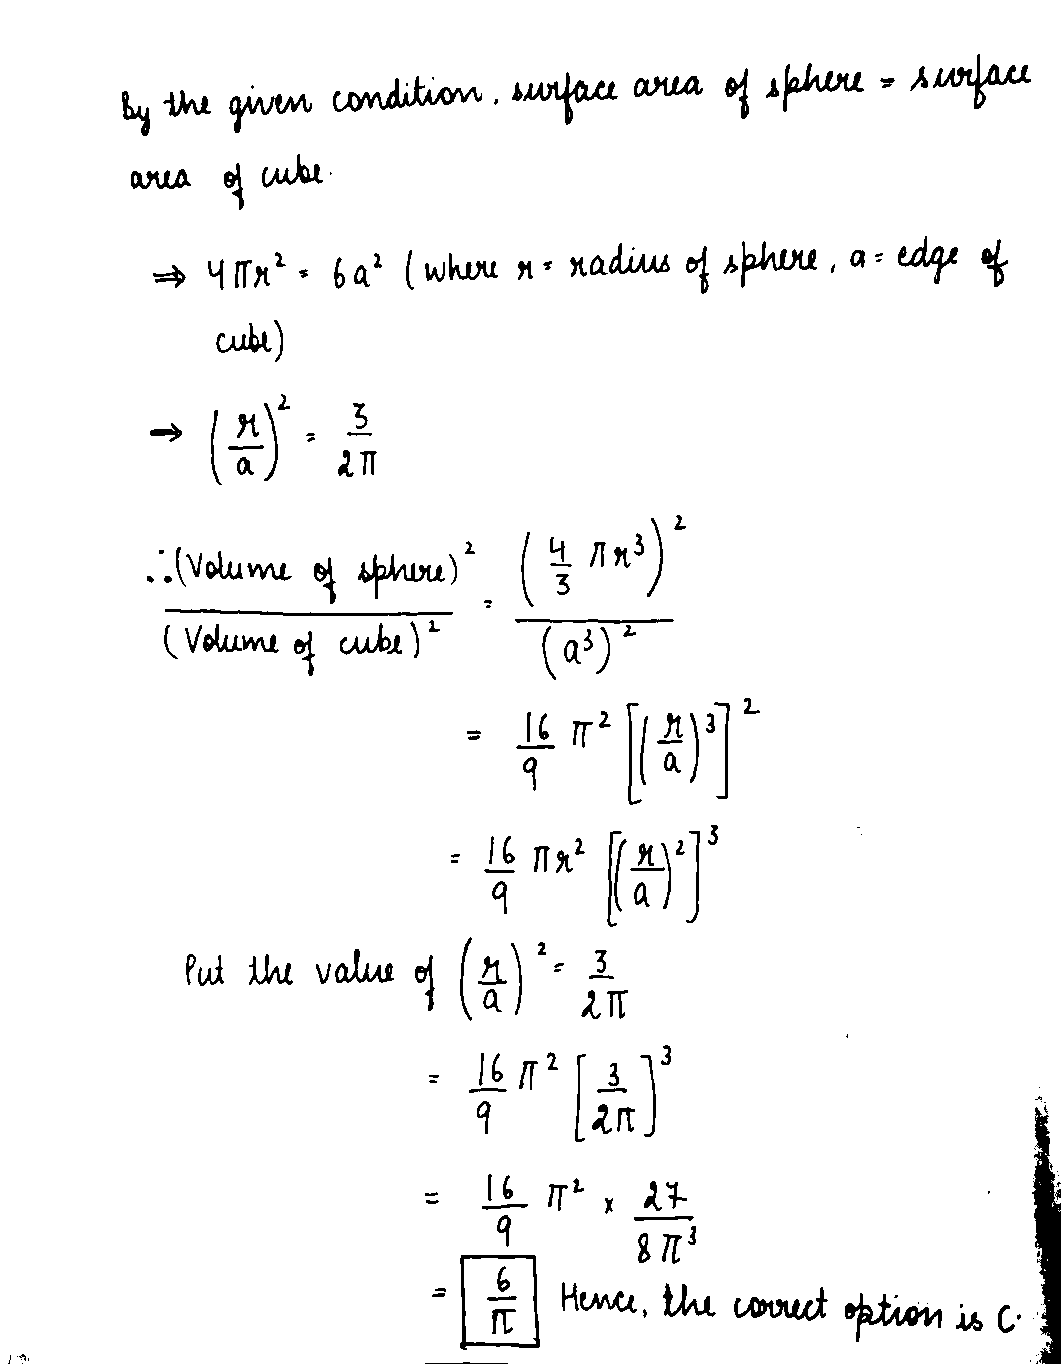 By the given condition, surface area of sphere = surface
area of cube.
⇒ 4πr² = 6a² (where r = radius of sphere, a = edge of
cube)
→ (r/a)² = 3/2π
∴ (Volume of sphere)² / (Volume of cube)² = (4/3 πr³)² / (a³)²
= 16/9 π² [(r/a)³]²
= 16/9 πr² [(r/a)²]³
Put the value of (r/a)² = 3/2π
= 16/9 π² [3/2π]³
= 16/9 π² x 27/8π³
= 6/π Hence, the correct option is C.